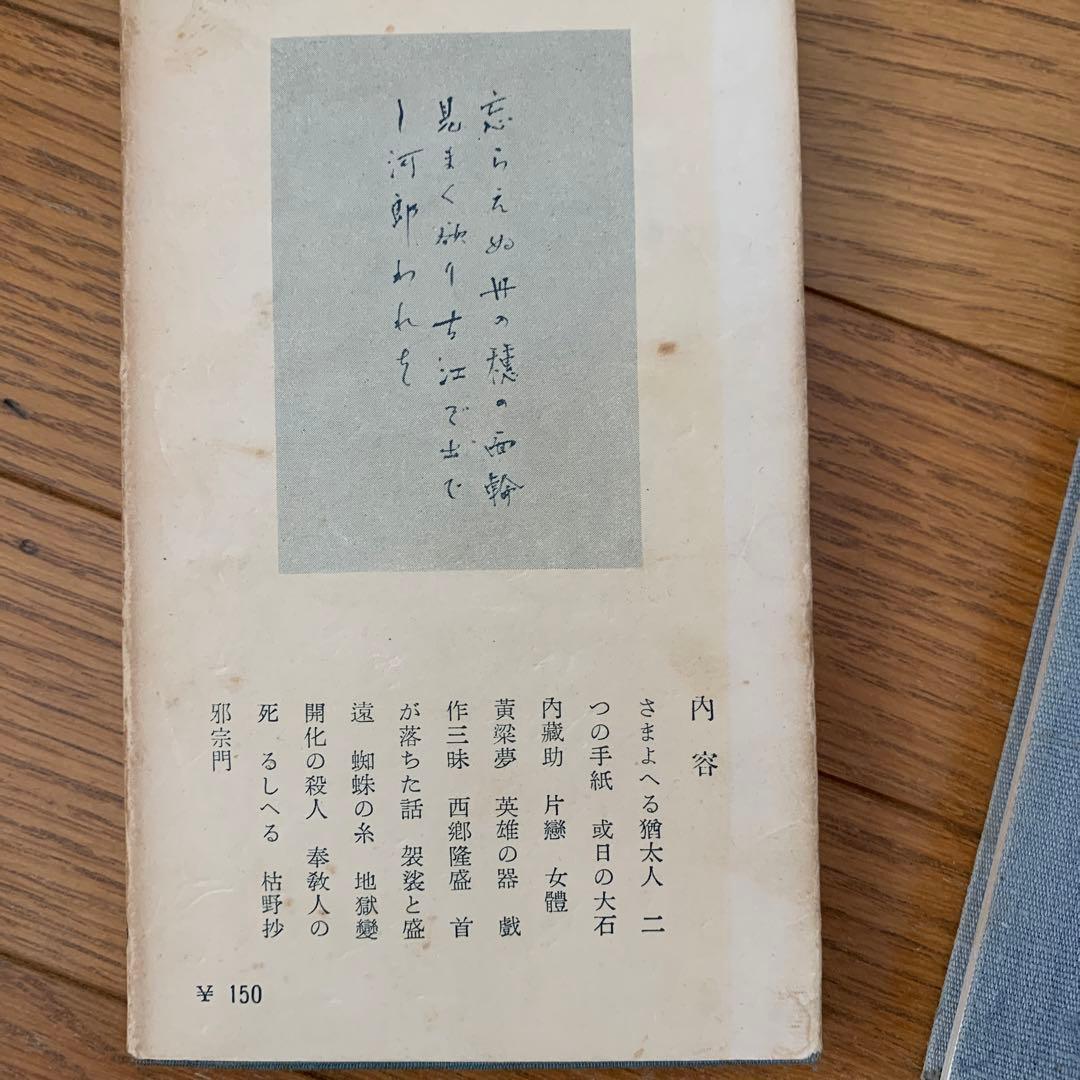 忘らえぬ丹の穂の面輪
見まく欲り古江ぞ出で
し河郎われを
內容
さまよへる猶太人　二
つの手紙　或日の大石
內藏助　片戀　女體
黃粱夢　英雄の器　戲
作三昧　西鄕隆盛　首
が落ちた話　袈裟と盛
遠　蜘蛛の糸　地獄變
開化の殺人　奉敎人の
死　るしへる　枯野抄
邪宗門
¥ 150